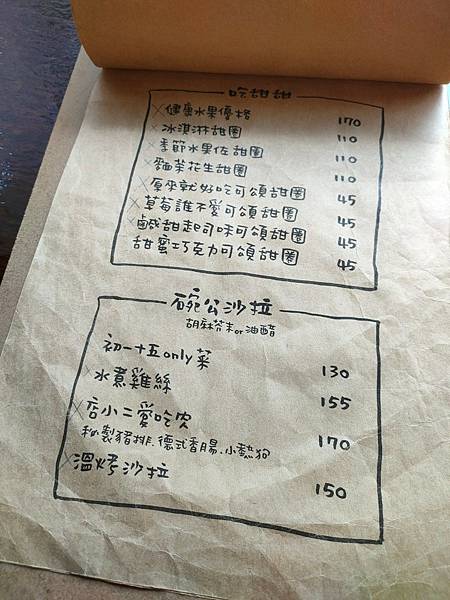 吃甜甜
×健康水果優格 170
×冰淇淋甜圈 110
×季節水果佐甜圈 110
×麵茶花生甜圈 110
×原來就好吃可頌甜圈 45
×草莓誰不愛可頌甜圈 45
×鹹甜起司味可頌甜圈 45
甜蜜巧克力可頌甜圈 45
碗公沙拉
胡麻芥末or油醋
初一十五only菜 130
×水煮雞絲 155
×店小二愛吃肉 170
秘製豬排.德式香腸.小熱狗
×溫烤沙拉 150